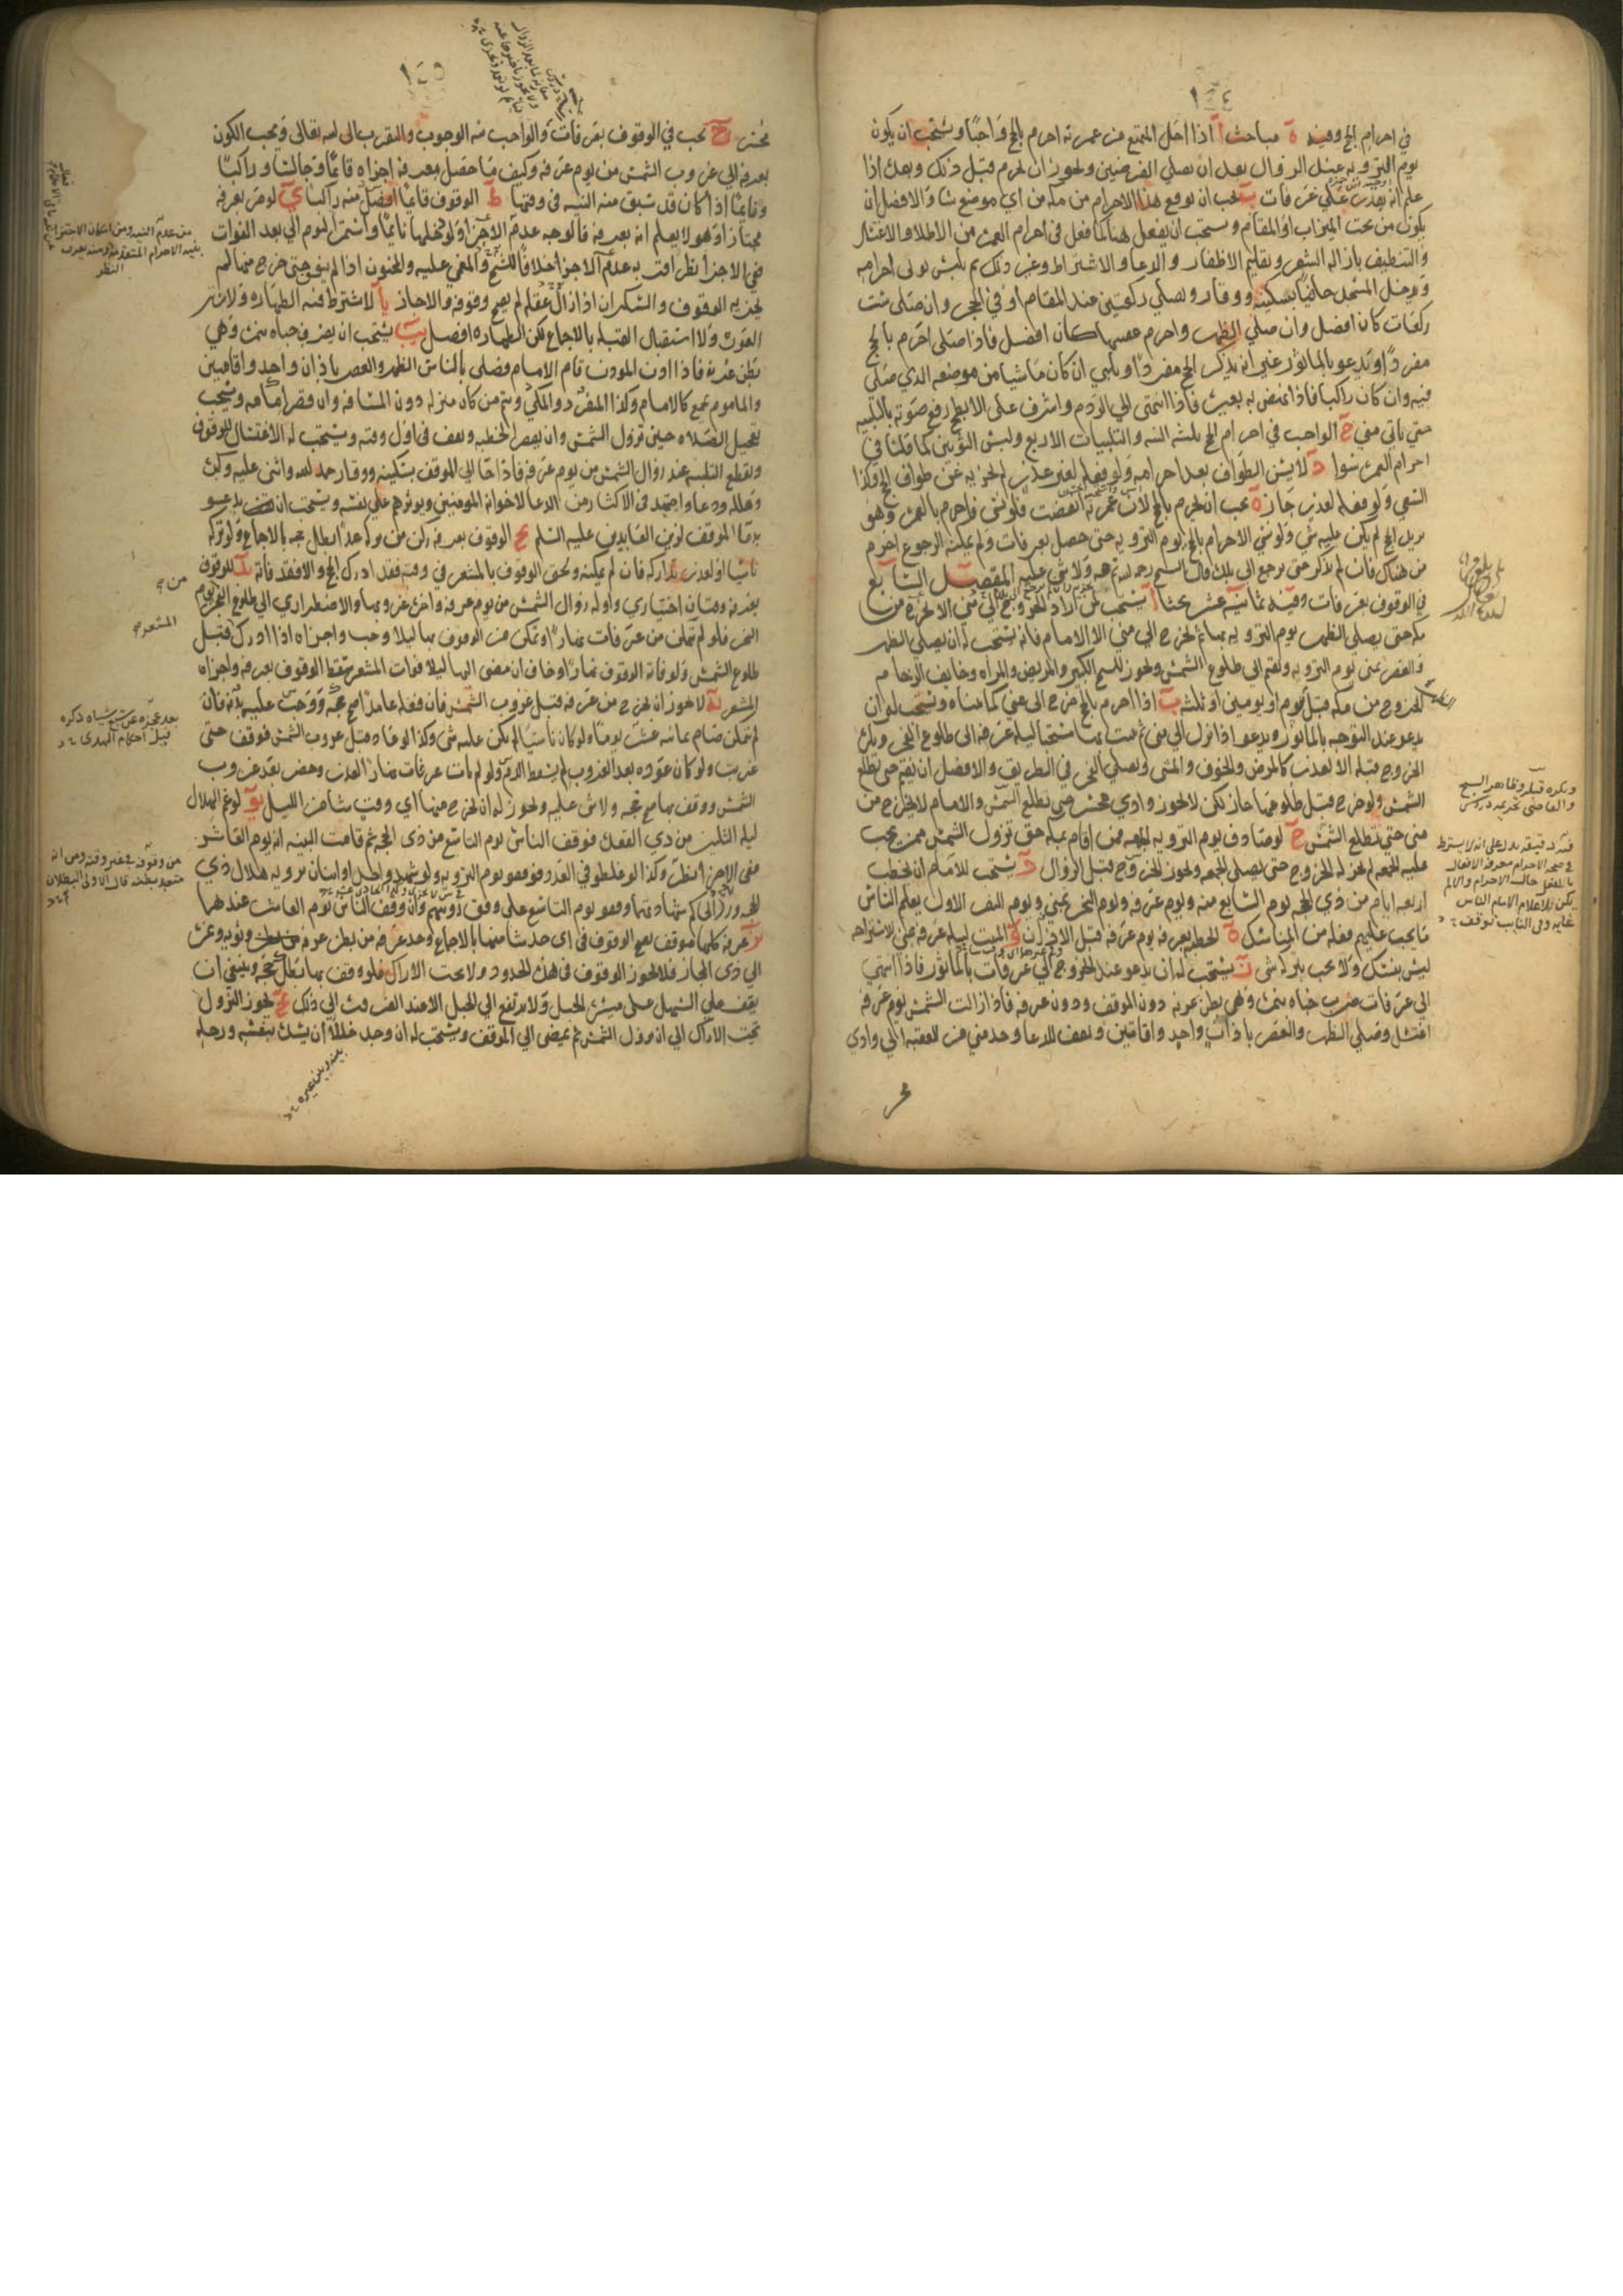 ١٤٤
في احرام الحج وفيه ه مباحث ا اذا احل المتمتع من عمرته احرم بالحج واجبا ويستحب ان يكون
يوم التروية عند الزوال بعد ان يصلي الفرضين ويجوز ان يحرم قبل ذلك وبعده اذا
علم انه يدرك عرفات ب يجب ان يوقع هذا الاحرام من مكة من اي موضع شا والافضل ان
يكون من تحت الميزاب او المقام ويستحب ان يفعل هنا كما فعل في احرام العمرة من الاطلا والاغتسال
والتنظيف بازالة الشعر وتقليم الاظفار والدعا والاشتراط وغير ذلك ثم يلبس ثوبي احرامه
ويدخل المسجد حافيا بسكينة ووقار ويصلي ركعتين عند المقام او في الحجر وان صلى ست
ركعات كان افضل وان صلي الظهر واحرم عقيبها كان افضل فاذا صلى احرم بالحج
مفردا ويدعو بالماثور غير انه يذكر الحج مفردا ويلبي ان كان ماشيا من موضعه الذي صلى
فيه وان كان راكبا فاذا نهض به بعيره فاذا انتهى الي الردم واشرف على الابطح رفع صوته بالتلبية
حتي ياتي مني ج الواجب في احرام الحج ثلثة النية والتلبيات الاربع ولبس الثوبين كما قلنا في
احرام العمرة سوا د لا يسن الطواف بعد احرامه ولو فعله لغير عذر لم يجزيه عن طواف الحج وكذا
السعي ولو فعله لعذر جاز ه يجب ان يحرم بالحج لان عمرته انقضت فلو نسي فاحرم بالعمرة وهو
يريد الحج لم يكن عليه شي ولو نسي الاحرام بالحج يوم التروية حتى حصل بعرفات ولم يمكنه الرجوع احرم
من هناك فان لم يذكر حتى يرجع الي بلده قال الشيخ رحمه الله تم حجه ولا شي عليه المقصد السابع
في الوقوف بعرفات وفيه ثمانية عشر بحثا ا يستحب لمن اراد الخروج الي مني الا يخرج من
مكة حتى يصلي الظهر يوم التروية بها ثم يخرج الي مني الا الامام فانه يستحب له ان يصلي الظهر
والعصر بمنى يوم التروية ويقيم الي طلوع الشمس ويجوز للشيخ الكبير والمريض والمراة وخايف الزحام
الخروج من مكة قبل يوم او يومين او ثلثة ب اذا احرم بالحج خرج الى مني كما بيناه ويستحب له ان
يدعو عند التوجه بالماثور ويدعو اذا نزل الي منى ثم يبيت بها مستحبا ليلة عرفة الى طلوع الفجر ويكره
الخروج قبله الا لعذر كالمرض والخوف والمشي ويصلي الفجر في الطريق والافضل ان يقيم حتى تطلع
الشمس ولو خرج قبل طلوعها جاز لكن لا يجوز وادي محسر حتى تطلع الشمس والامام لا يخرج من
منى حتى تطلع الشمس ج لو صادف يوم التروية الجمعة فمن اقام بمكة حتى تزول الشمس ممن يجب
عليه الجمعة لم يجز له الخروج حتى يصلي الجمعة ويجوز الخروج قبل الزوال د يستحب للامام ان يخطب
اربعة ايام من ذي الحجة يوم السابع منه ويوم عرفة ويوم النحر بمني ويوم النفر الاول يعلم الناس
ما يجب عليهم فعله من المناسك ه الخطبة بعرفة يوم عرفة قبل الاذان و المبيت ليلة عرفة بمني للاستراحة
ليس بنسك ولا يجب بتركه شي ز يستحب له ان يدعو عند الخروج الي عرفات بالماثور فاذا انتهي
الى عرفات ضرب خباه بنمرة وهي بطن عرنة دون الموقف ودون عرفة فاذا زالت الشمس يوم عرفة
اغتسل وصلي الظهر والعصر باذان واحد واقامتين ويقف للدعا وحد مني من العقبة الي وادي
ويكره قبله وظاهر الشيخ
والقاضي تحريمه دروس
فيه دقيقة تدل على انه لا يشترط
في صحة الاحرام معرفة الافعال
١٤٥
محسر ح يجب في الوقوف بعرفات والواجب نية الوجوب والتقرب الى الله تعالى ويجب الكون
بعرفة الي غروب الشمس من يوم عرفة وكيف ما حصل بعرفة اجزاه قايما وجالسا وراكبا
ونايما اذا كان قد سبق منه النية في وقتها ط الوقوف قايما افضل منه راكبا ي لو مر بعرفة
مجتازا وهو لا يعلم انه بعرفة فالوجه عدم الاجزا ولو دخلها نايما واستمر النوم الي بعد الفوات
ففي الاجزا نظر اقربه عدم الاجزا خلافا للشيخ والمغمي عليه والمجنون اذا لم يفق حتى خرج منها لم
يجزيه الوقوف والسكران اذا زال عقله لم يصح وقوفه والا جاز يا لا يشترط فيه الطهارة ولا ستر
العورة ولا استقبال القبلة بالاجماع لكن الطهارة افضل يب يستحب ان يضرب خباه بنمرة وهي
بطن عرنة فاذا اذن الموذن قام الامام فصلى بالناس الظهر والعصر باذان واحد واقامتين
والماموم يجمع كالامام وكذا المنفرد والمكي ويتم من كان منزله دون المسافة وان قصر امامه ويستحب
تعجيل الصلاة حين تزول الشمس وان يقصر الخطبة ويقف في اول وقته ويستحب له الاغتسال للوقوف
ويقطع التلبية عند زوال الشمس من يوم عرفة فاذا جا الي الموقف بسكينة ووقار حمد الله واثنى عليه وكبره
وهلله ودعا واجتهد في الاكثار من الدعا لاخوانه المومنين ويوثرهم علي نفسه ويستحب ان يدعو
بدعا الموقف لزين العابدين عليه السلم يج الوقوف بعرفة ركن من تركه عمدا بطل حجه بالاجماع ولو تركه
ناسيا او لعذر تداركه فان لم يمكنه ولحق الوقوف بالمشعر في وقته فقد ادرك الحج والا فقد فاته يد للوقوف
بعرفة وقتان اختياري واوله زوال الشمس من يوم عرفة واخره غروبها والاضطراري الي طلوع الفجر يوم
النحر فلو لم يتمكن من عرفات نهارا وتمكن من الوقوف بها ليلا وجب واجزاه اذا ادرك قبل
طلوع الشمس ولو فاته الوقوف نهارا وخاف ان مضى اليها ليلا فوات المشعر سقط الوقوف بعرفة واجزاه
المشعر يه لا يجوز ان يخرج من عرفة قبل غروب الشمس فان فعله عامدا صح حجه ووجب عليه بدنة فان
لم يتمكن صام ثمانية عشر يوما ولو كان ناسيا لم يكن عليه شي وكذا لو عاد قبل غروب الشمس فوقف حتى
غربت ولو كان عوده بعد الغروب لم يسقط الدم ولو لم يات عرفات نهارا لعذر وحضر بعد غروب
الشمس ووقف بها صح حجه ولا شي عليه ويجوز له ان يخرج منها اي وقت شا من الليل يو لو غم الهلال
ليلة الثلثين من ذي القعدة فوقف الناس يوم التاسع من ذي الحجة ثم قامت البينة انه يوم العاشر
ففي الاجزا نظر وكذا لو غلطوا في العدد فوقفوا يوم التروية ولو شهد واحد او اثنان بروية هلال ذي
الحجة ورد الحاكم شهادتهما وقفوا يوم التاسع على وفق رويتهم وان وقف الناس يوم العاشر عندهما
يز عرفة كلها موقف يصح الوقوف في اي حد شا منها بالاجماع وحد عرفة من بطن عرنة وثوية ونمرة
الي ذي المجاز فلا يجوز الوقوف في هذه الحدود ولا تحت الاراك فلو وقف بها بطل حجه وينبغي ان
يقف علي السهل على ميسرة الجبل ولا يرتفع الي الجبل الا عند الضرورة الي ذلك يح يجوز النزول
تحت الاراك الي ان تزول الشمس ثم يمضي الي الموقف ويستحب له ان وجد خللا ان يسده بنفسه ورحله
من عدم النية ومن امكان الاجتزا
بنية الاحرام المتقدمة ومنه يعرف
النظر
بعد عجزه عن سبع شياه ذكره
قبيل احكام الهدى